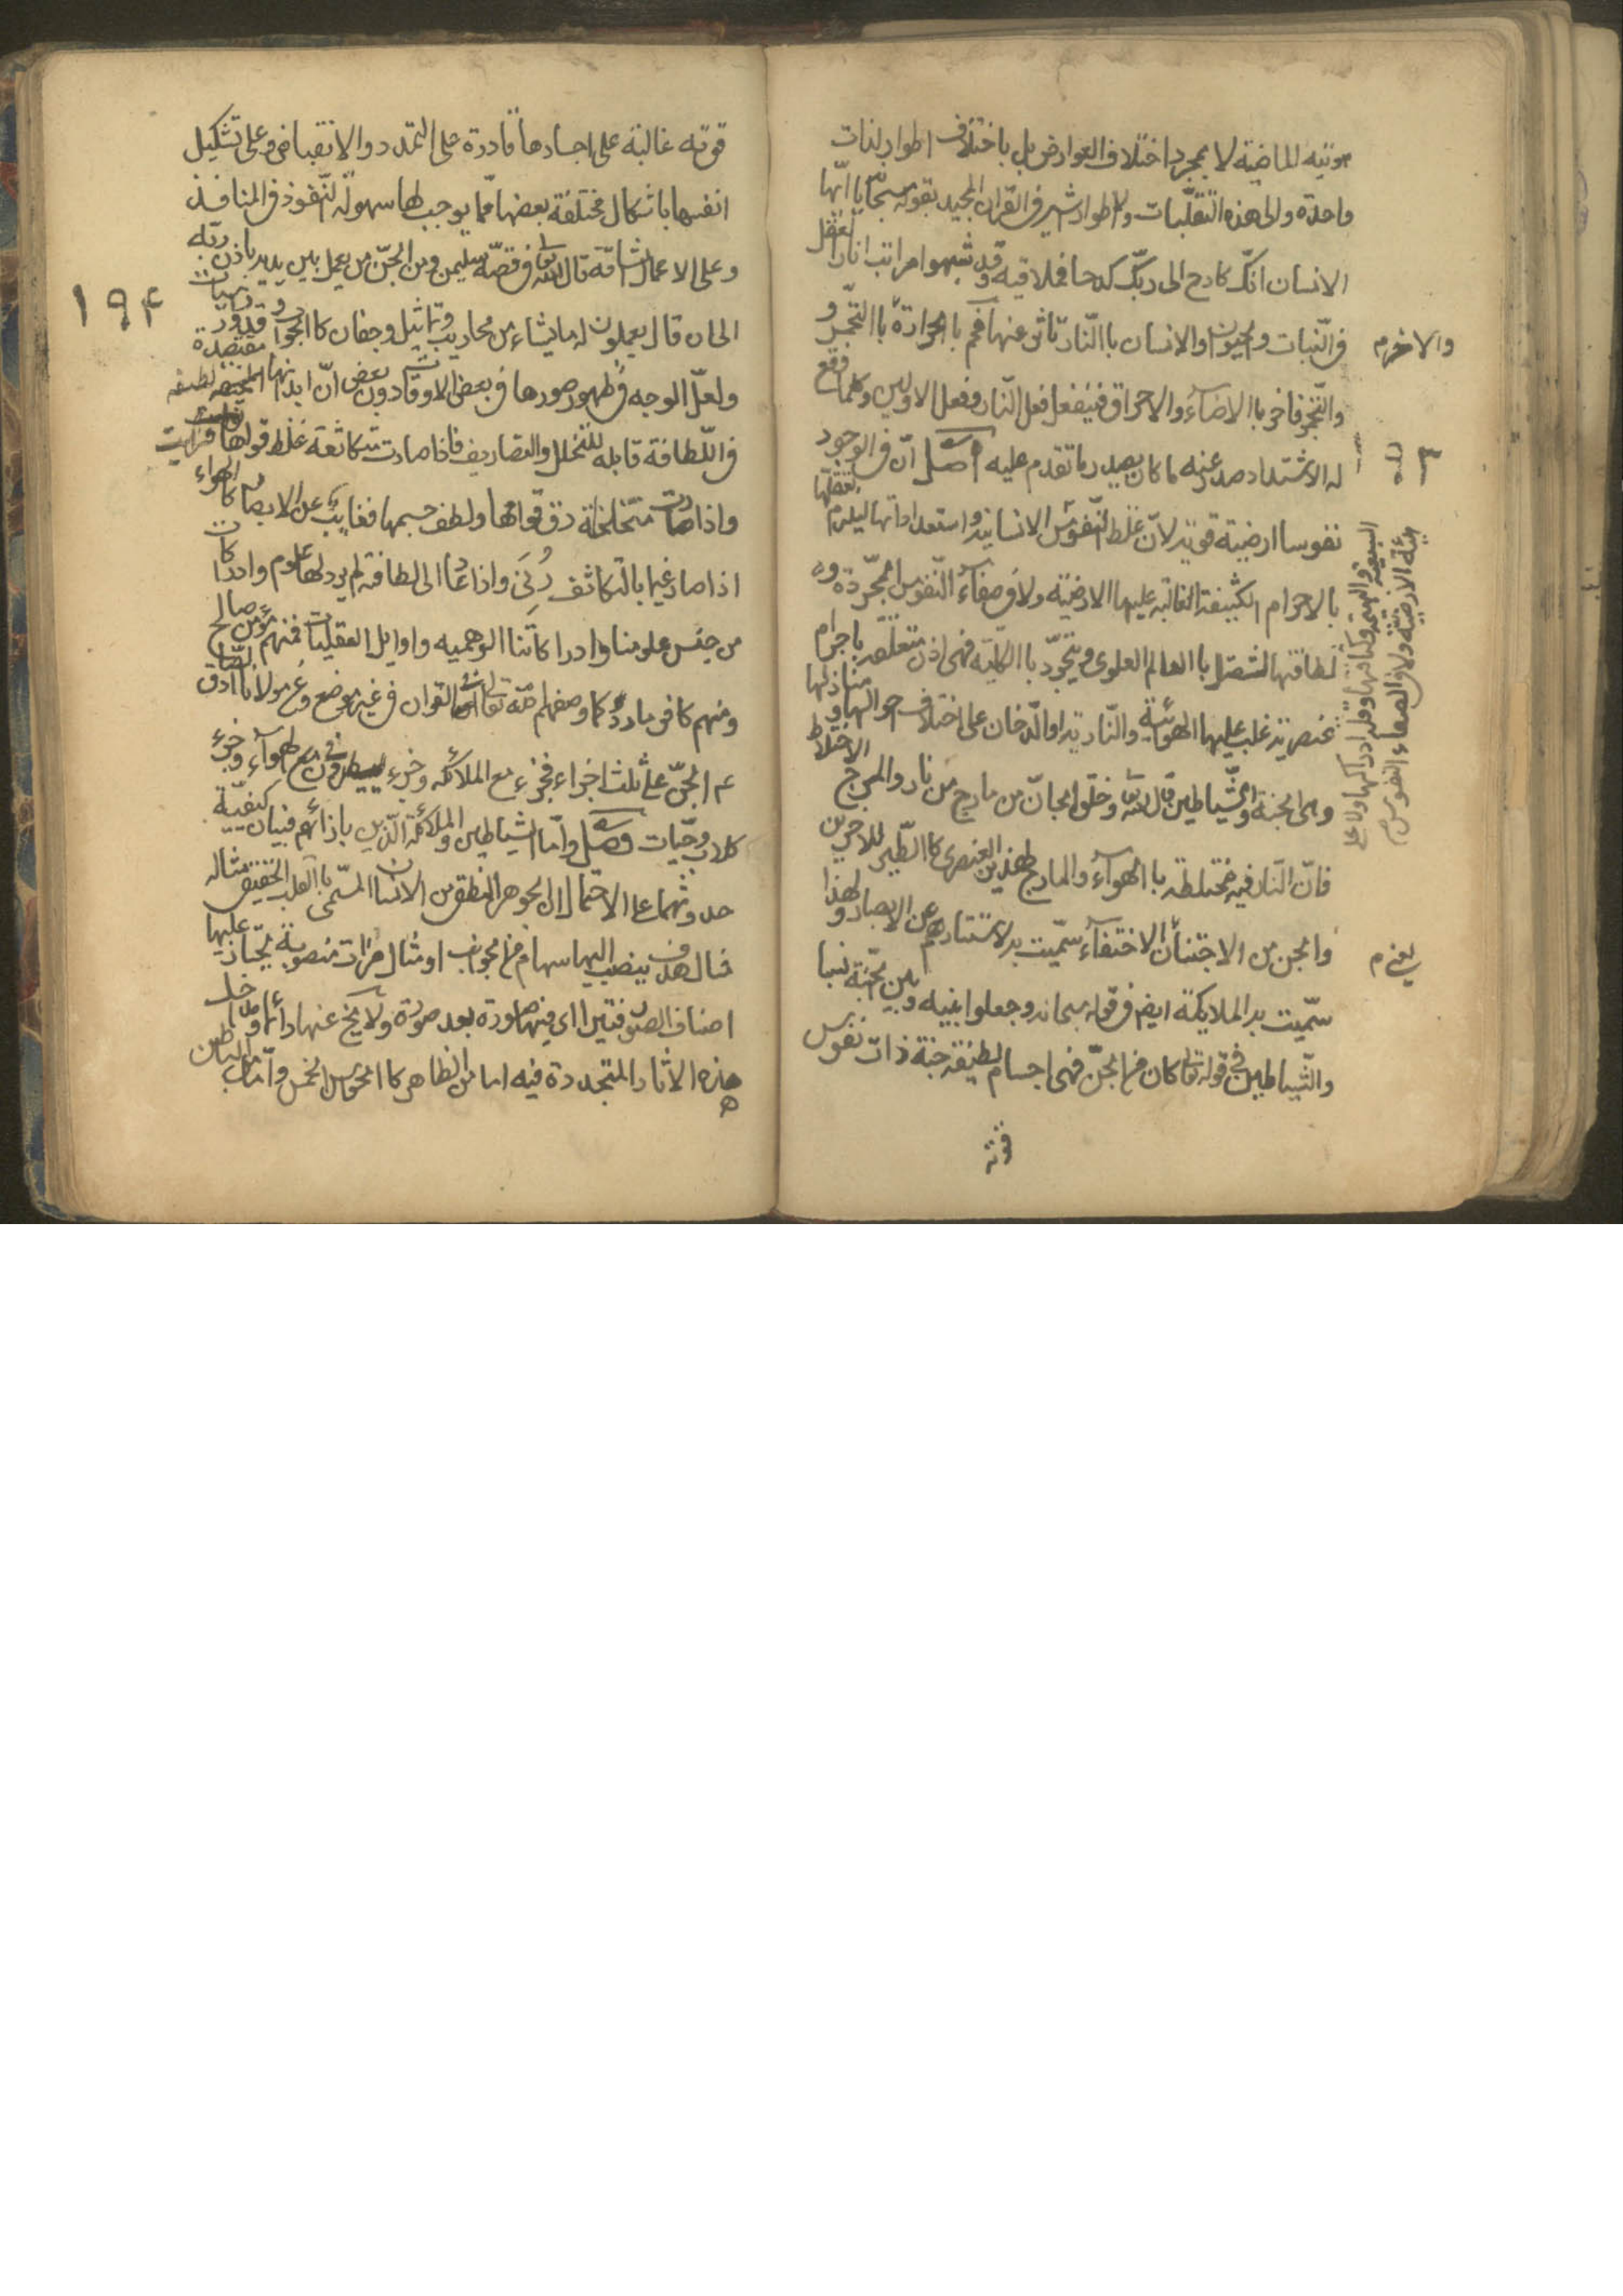 هويته الماضية لا بمجرد اختلاف العوارض بل باختلاف اطوار لذات
واحدة والى هذه التقلبات والاطوار اشير في القران المجيد بقوله سبحانه يا ايها
الانسان انك كادح الى ربك كدحا فملاقيه وقد شبهوا مراتب اثار العقل
في النبات والحيوان والانسان باالنار تاثر عنها فحم باالحرارة باالتجمر و
والاخر م
والتجمر فاخر باالاضاءة والاحراق فيفعل فعل النار وفعل الاولين وكلما وقع
له الاشتداد صدر عنه ما كان يصدر ما تقدم عليه اصل ان في الوجود
نفوسا ارضية قوية لا في غلظ النفوس الانسانية واستعداداتها ليلزم تعقلها
بالاجرام الكثيفة الغالبة عليها الارضية ولا في صفاء النفوس المجردة و
لطافتها لتتصل باالعالم العلوى وتتجرد باالكلية فهى اذن متعلقه باجرام
عنصرية غلب عليها الهوائية والنارية او الدخان على اختلاف احوالها و منازلها
وهى الجنة والشياطين قال الله تعالى وخلق الجان من مارج من نار والمرج الاختلاط
فان النار فيه مختلطه باالهواء والمارج لهذين العنصرين كاالطين للاخرين
والجن من الاجتنان الاختفاء سميت به لاستتارهم عن الابصار ولهذا
يعنى م
سميت به الملايكة ايضا في قوله سبحانه وجعلوا بينه وبين الجنة نسبا
والشياطين في قوله تعالى كان من الجن فهى اجسام لطيفه حية ذات نفوس
قوته
قوته غالبة على اجسادها قادرة على التمدد والانقباض وعلى تشكيل
انفسها باشكال مختلفة بعضها مما يوجب لها سهولة النفوذ في المنافذ
وعلى الاعمال الشاقة قال الله تعالى في قصة سليمن ومن الجن من يعمل بين يديه باذن ربه
١٩٤
الى ان قال يعملون له ما يشاء من محاريب وتماثيل وجفان كاالجواب وقدور راسيات
ولعل الوجه في ظهور صورها في بعض الاوقات دون بعض ان ابدانها العنصريه لطيفه مقتصدة
في اللطافة قابله للتخلل والتصاريف فاذا صارت متكاثفة غلظ قوامها فرايت
واذا صارت متخلخلة رق قوامها ولطف جسمها فغابت عن الابصار كاالهواء
اذا صار غيما بالتكاثف رُئى واذا عاد الى لطافته لم ير ولها علوم وادراكات
من جنس علومنا وادراكاتنا الوهميه واوايل العقليات فمنهم مؤمن صالح
ومنهم كافر مارد كما وصفهم الله تعالى في القران في غير موضع وعن مولانا الصادق
ع م الجن على ثلث اجزاء فجزء مع الملائكه وجزء يطيرون في الهواء وجزء
كلاب وحيات وصل واما الشياطين والملائكة الذين بازائهم فبيان كيفية
حدوثهما على الاحتمال ان الجوهر النطقى من الانسان المسمى باالقلب الحقيقى مثاله
مثال هدف ينصب اليها سهام من الجوانب او مثال مرات منصوبة يجتاز عليها
اصناف الصور فتترااى فيها صورة بعد صورة ولا يخ عنها دائما ومداخل
هذه الاثار المتجددة فيه اما من الظاهر كاالحواس الخمس واما من الباطن